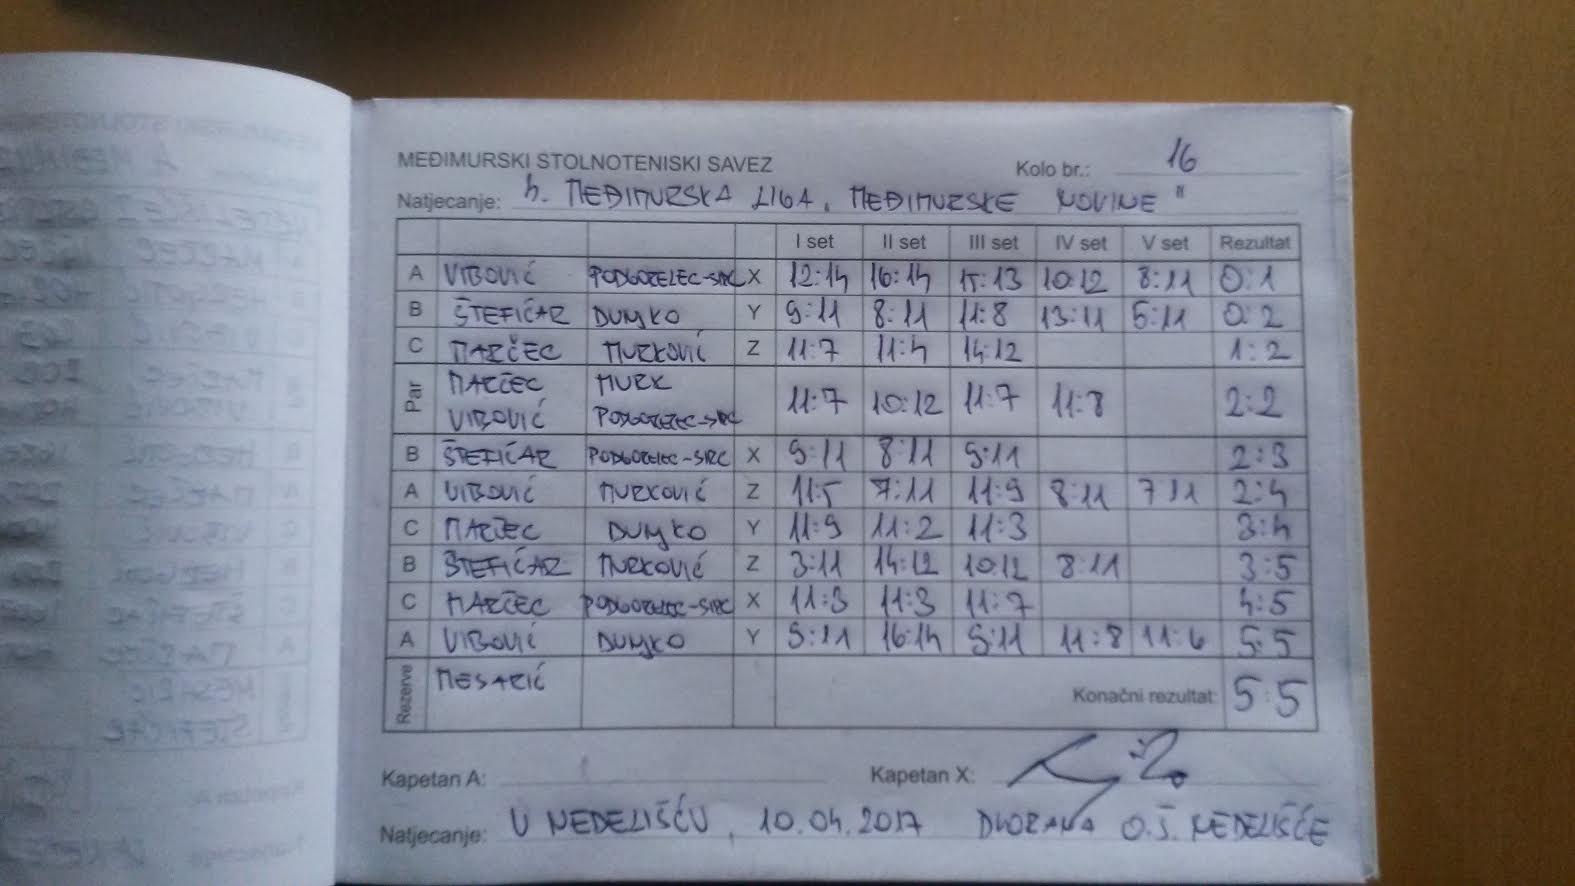 MEĐIMURSKI STOLNOTENISKI SAVEZ
Kolo br.: 16
Natjecanje: MEĐIMURSKA LIGA „MEĐIMURSKE NOVINE"
I set II set III set IV set V set Rezultat
A VIBOVIĆ PODGORELEC-SRC X 12:14 16:14 15:13 10:12 8:11 0:1
B ŠTEFIČAR DUNJKO Y 9:11 8:11 11:8 13:11 5:11 0:2
C MARČEC MURKOVIĆ Z 11:7 11:4 14:12 1:2
Par MARČEC MURK
VIBOVIĆ PODGORELEC-SRC 11:7 10:12 11:7 11:8 2:2
B ŠTEFIČAR PODGORELEC-SRC X 9:11 8:11 9:11 2:3
A VIBOVIĆ MURKOVIĆ Z 11:5 7:11 11:9 8:11 7:11 2:4
C MARČEC DUNJKO Y 11:9 11:2 11:3 3:4
B ŠTEFIČAR MURKOVIĆ Z 3:11 14:12 10:12 8:11 3:5
C MARČEC PODGORELEC-SRC X 11:3 11:3 11:7 4:5
A VIBOVIĆ DUNJKO Y 9:11 16:14 9:11 11:8 11:6 5:5
Rezerve MESARIĆ Konačni rezultat: 5:5
Kapetan A: Kapetan X:
Natjecanje: U NEDELIŠĆU, 10.04.2017 DVORANA O.Š. NEDELIŠĆE